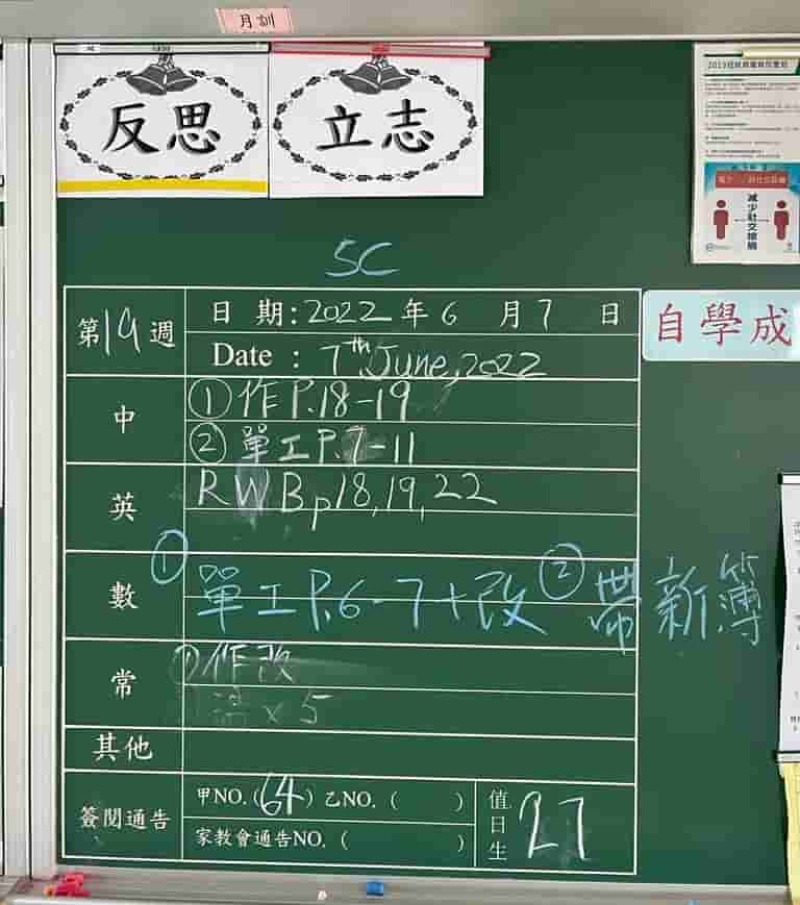 月訓
反思
立志
減少社交接觸
5C
第19週
日 期:2022年6月7日
Date : 7th June, 2022
自學成
中
①作P.18-19
②單工P.7-11
英
RWBp18,19,22
數
①單工P.6-7+改 ②帶新簿
常
①作改
x 5
其他
簽閱通告
甲NO.(64) 乙NO.( )
家教會通告NO.( )
值日生
27